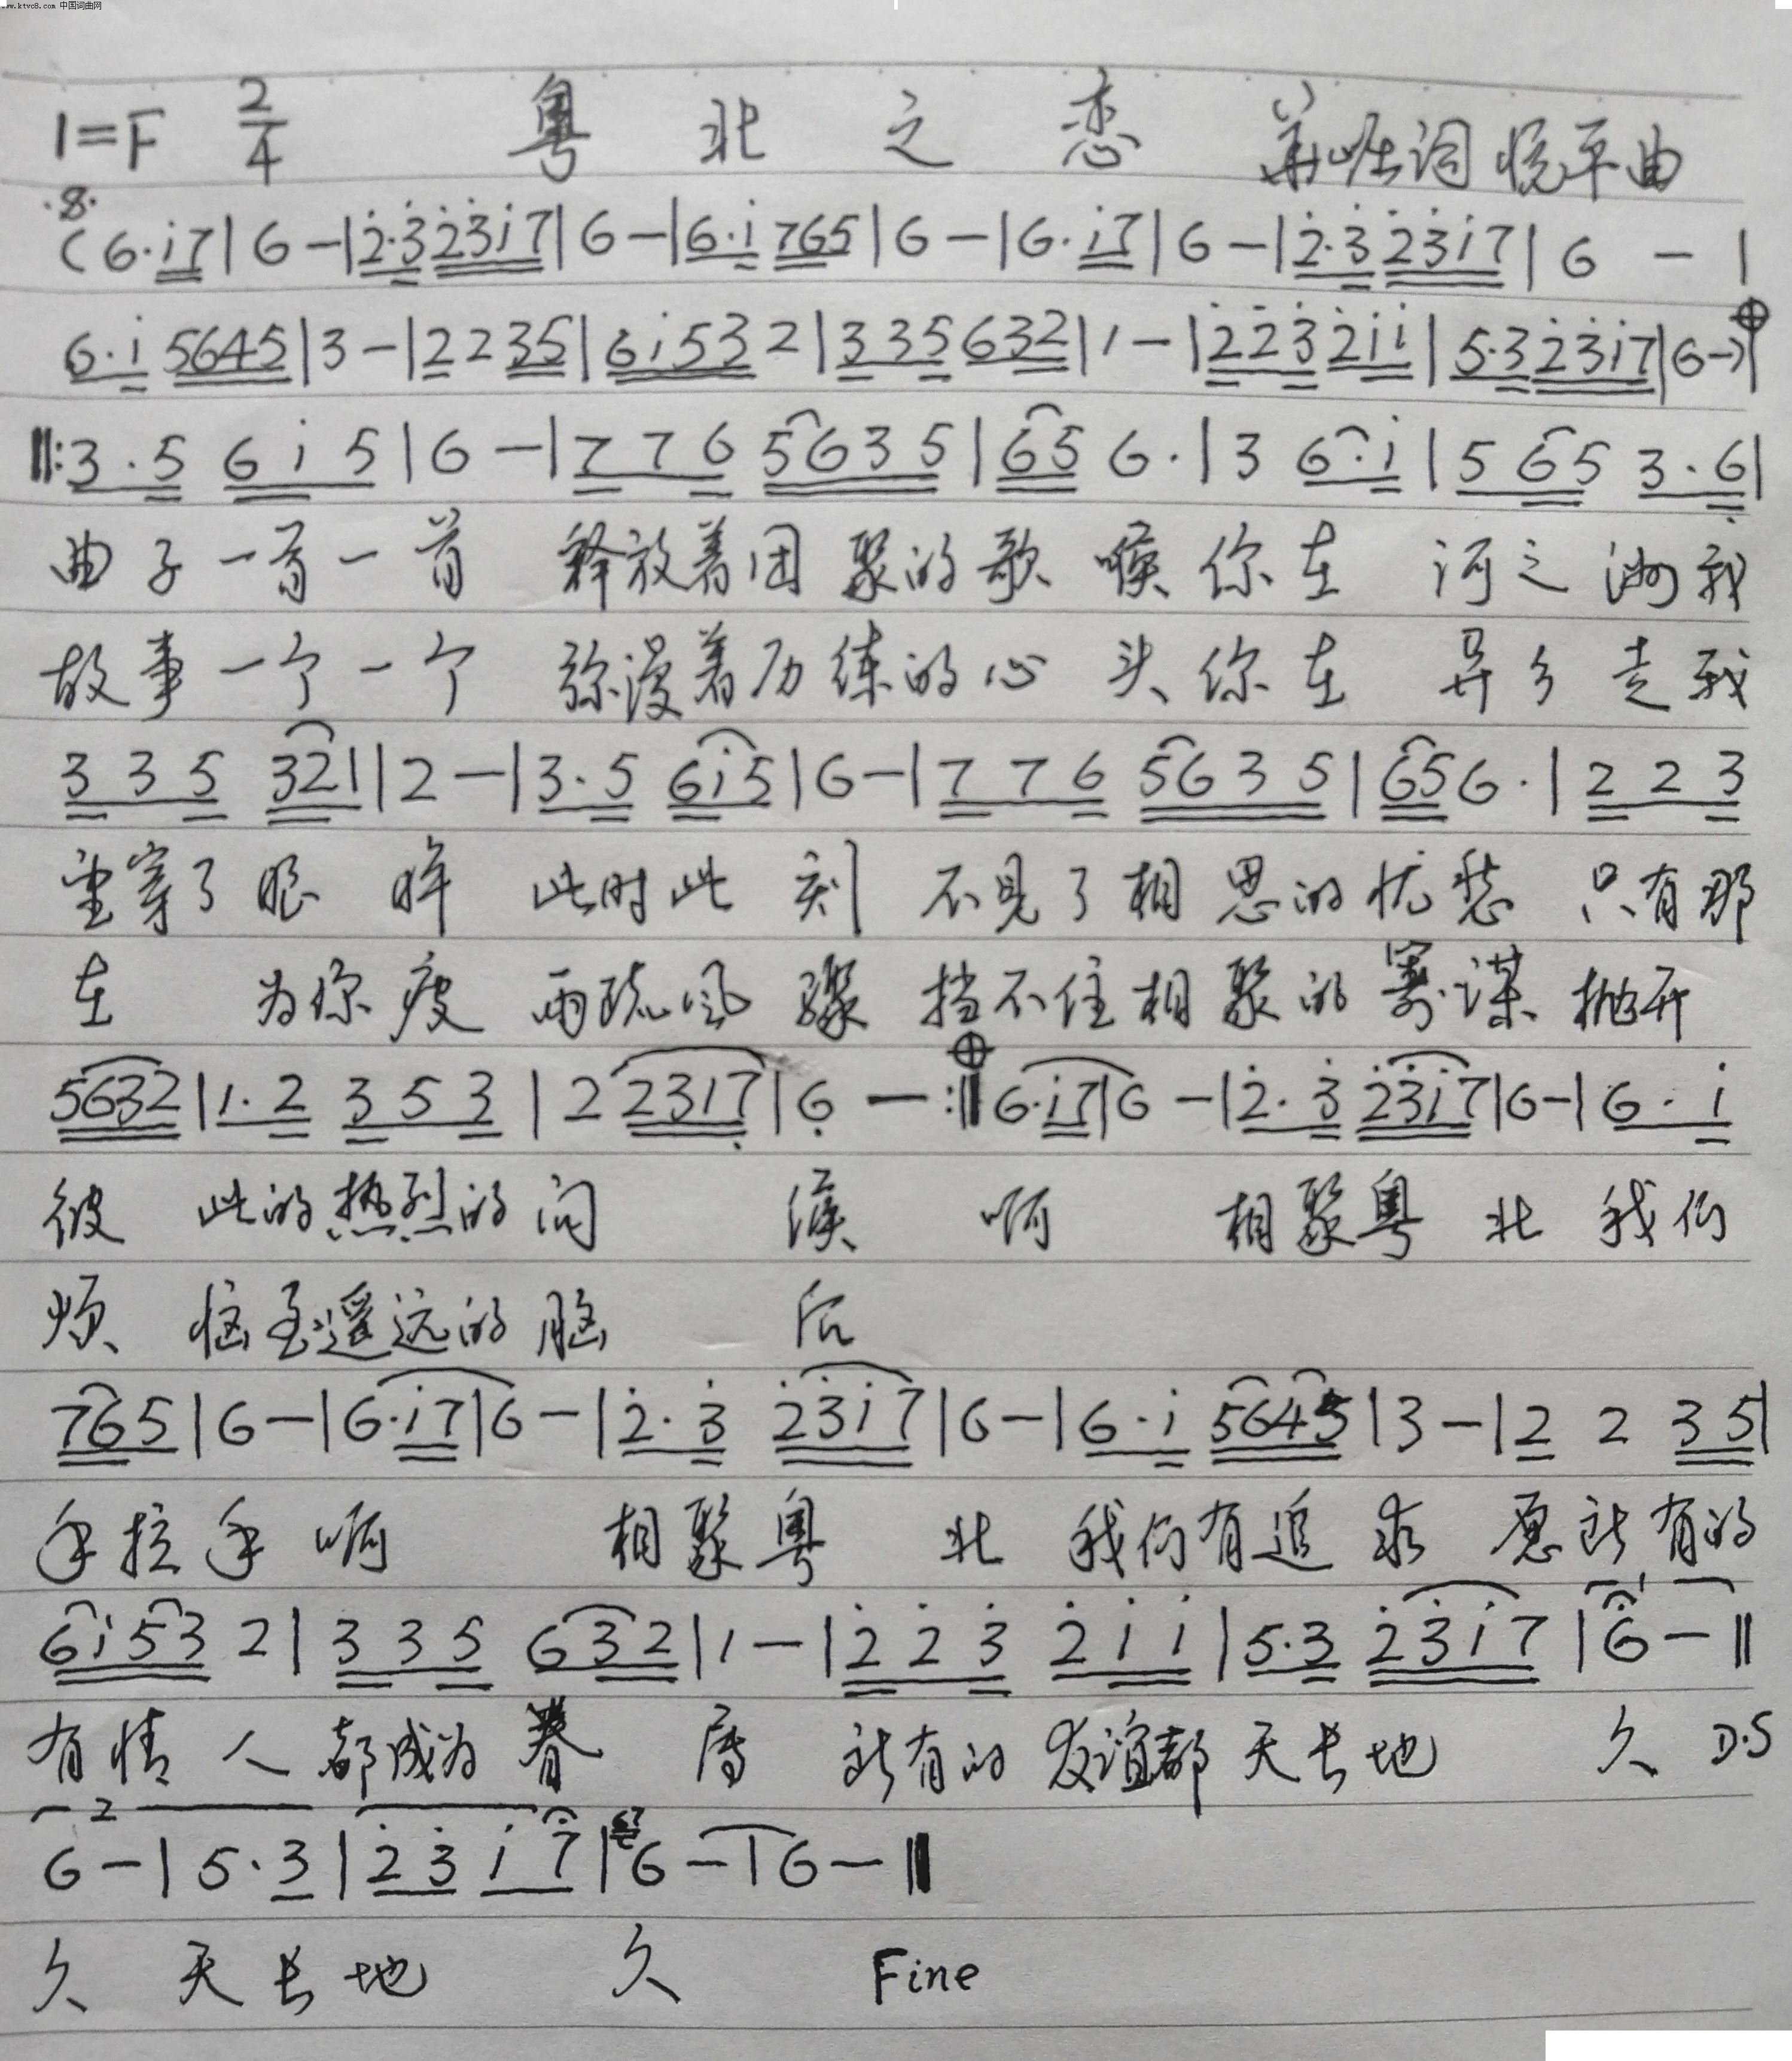 www.ktvc8.com 中国词曲网
1=F 2/4 粤北之恋 词 悦平曲
·8·
(6·i̇7|6-|2̇·3̇2̇3̇i̇7|6-|6·i̇765|6-|6·i̇7|6-|2̇·3̇2̇3̇i̇7|6-|
6·i̇5645|3-|2235|6i̇532|335632|1-|2̇2̇3̇2̇i̇i̇|5·32̇3̇i̇7|6-)|
‖:3·5 6i̇5|6-|776 5635|656·|3 6·i̇|565 3·6̣|
曲子一首一首 释放着团聚的歌喉你在 河之洲我
故事一个一个 弥漫着历练的心头你在 异乡走我
335 321|2-|3·5 6i̇5|6-|776 5635|656·|223
望穿了眼眸 此时此刻 不见了相思的忧愁 只有那
在 为你瘦 雨疏风骤 挡不住相聚的筹谋 抛开
5632|1·2 353|2 2317̣|6̣-:‖6·i̇7|6-|2̇·3̇ 2̇3̇i̇7|6-|6·i̇
彼 此的热烈的问 候 啊 相聚粤北 我们
烦 恼至遥远的脑 后
765|6-|6·i̇7|6-|2̇·3̇ 2̇3̇i̇7|6-|6·i̇ 5645|3-|22 35|
手拉手 啊 相聚粤 北 我们有追求 愿所有的
6i̇53 2|335 632|1-|2̇2̇3̇ 2̇i̇i̇|5·3 2̇3̇i̇7|6-‖
有情人都成为眷 属 所有的友谊都天长地 久 D.S
2
6-|5·3|2̇3̇ i̇7|6-|6-‖
久 天长地 久 Fine